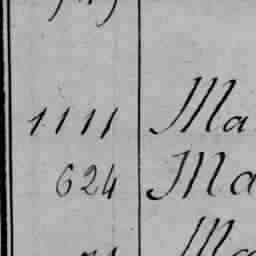 1111 Ma
624 Ma
Ma